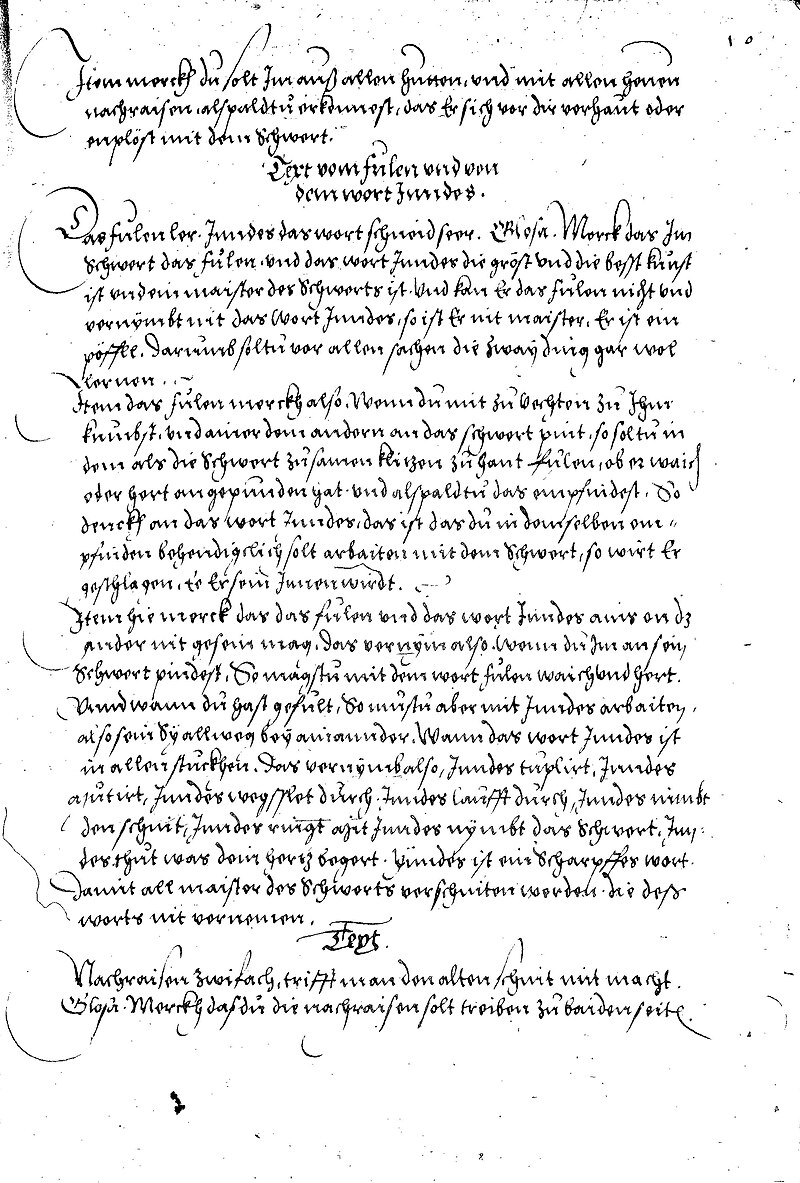 10
Item merckh du solt Im auß allen hutten, vnd mit allen henen
nachraisen, alspaldtu erkennest, das Er sich vor dir verhaut oder
enplöst mit dem Schwert.
Text vom fülen vnd von
dem wort Inndes.
Das fulen ler. Inndes das wort schneid seer. Glosa. Merck das Im
Schwert das fulen, vnd das wort Inndes die gröst vnd die besst kunst
ist vnd ein maister des Schwerts ist. Vnd kan Er das fulen nicht vnd
vernÿmbt nit das wort Inndes, so ist Er nit maister, Er ist ein
pöffel. Darumb soltu vor allen sachen die zwaÿ ding gar wol
lernen.
Item das fulen merckh also. Wenn du mit zu vechten zu Ihm
kumbst, vnd ainer dem andern an das schwert pint, so soltu in
dem als die Schwert zusamen klitzen zu hant fulen, ob er waich
oder hert angepunden hat. vnd alspaldtu das empfindest, So
denckh an das wort Inndes, das ist das du in demselben em=
pfinden behendigclich solt arbaiten mit dem Schwert, so wirt Er
geschlagen, ee Er sein Innen wirdt.
Item hie merck das das fulen vnd das wort Inndes ains on dz
ander nit gesein mag, das vernÿm also. Wenn du Im an sein
Schwert pindest, So magstu mit dem wort fulen waich vnd hert.
Vnnd wann du hast gefult, So mustu aber mit Inndes arbaiten,
also sein Sÿ allweg beÿ ainannder. Wann das wort Inndes ist
in allen stuckhen. Das vernÿmb also, Inndes tuplirt, Inndes
mutirt, Inndes wegsslet durch. Inndes laufft durch, Inndes nimbt
den schnit, Inndes ringt mit Inndes nÿmbt das Schwert, Inn=
des thut was dein hertz begert. Inndes ist ein Scharpffes wort.
Damit all maister des Schwerts verschniten werden. die deß
worts nit vernemen.
Text.
Nachraisen zwifach, trifft man den alten schnit mit macht.
Glosa. Merckh das du die nachraisen solt treiben zu baiden seiten.